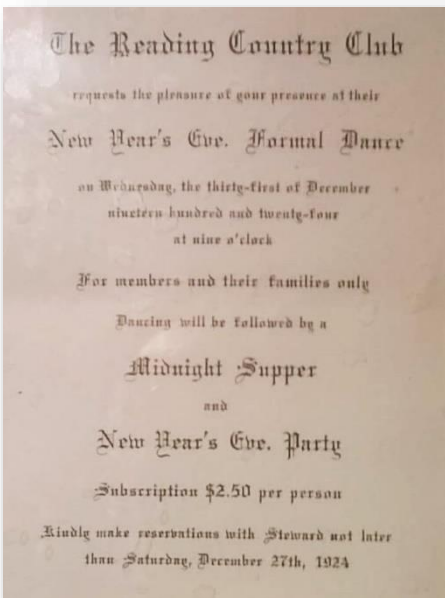 The Reading Country Club
requests the pleasure of your presence at their
New Year's Eve. Formal Dance
on Wednesday, the thirty-first of December
nineteen hundred and twenty-four
at nine o'clock
For members and their families only
Dancing will be followed by a
Midnight Supper
and
New Year's Eve. Party
Subscription $2.50 per person
Kindly make reservations with Steward not later
than Saturday, December 27th, 1924